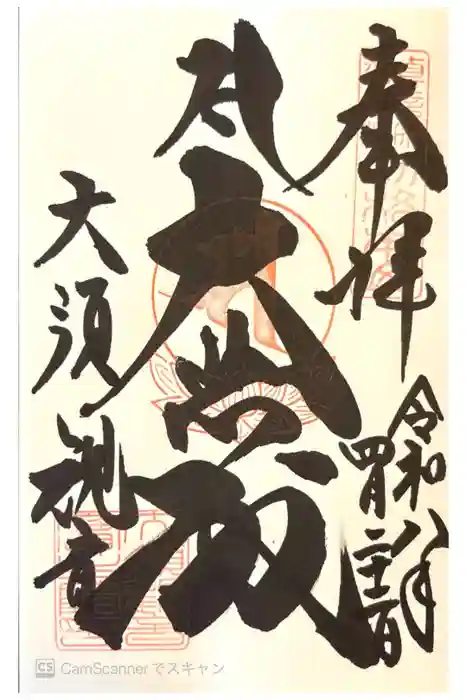 奉拝
令和八年
四月二十二日
大悲殿
大須観音
CS CamScannerでスキャン